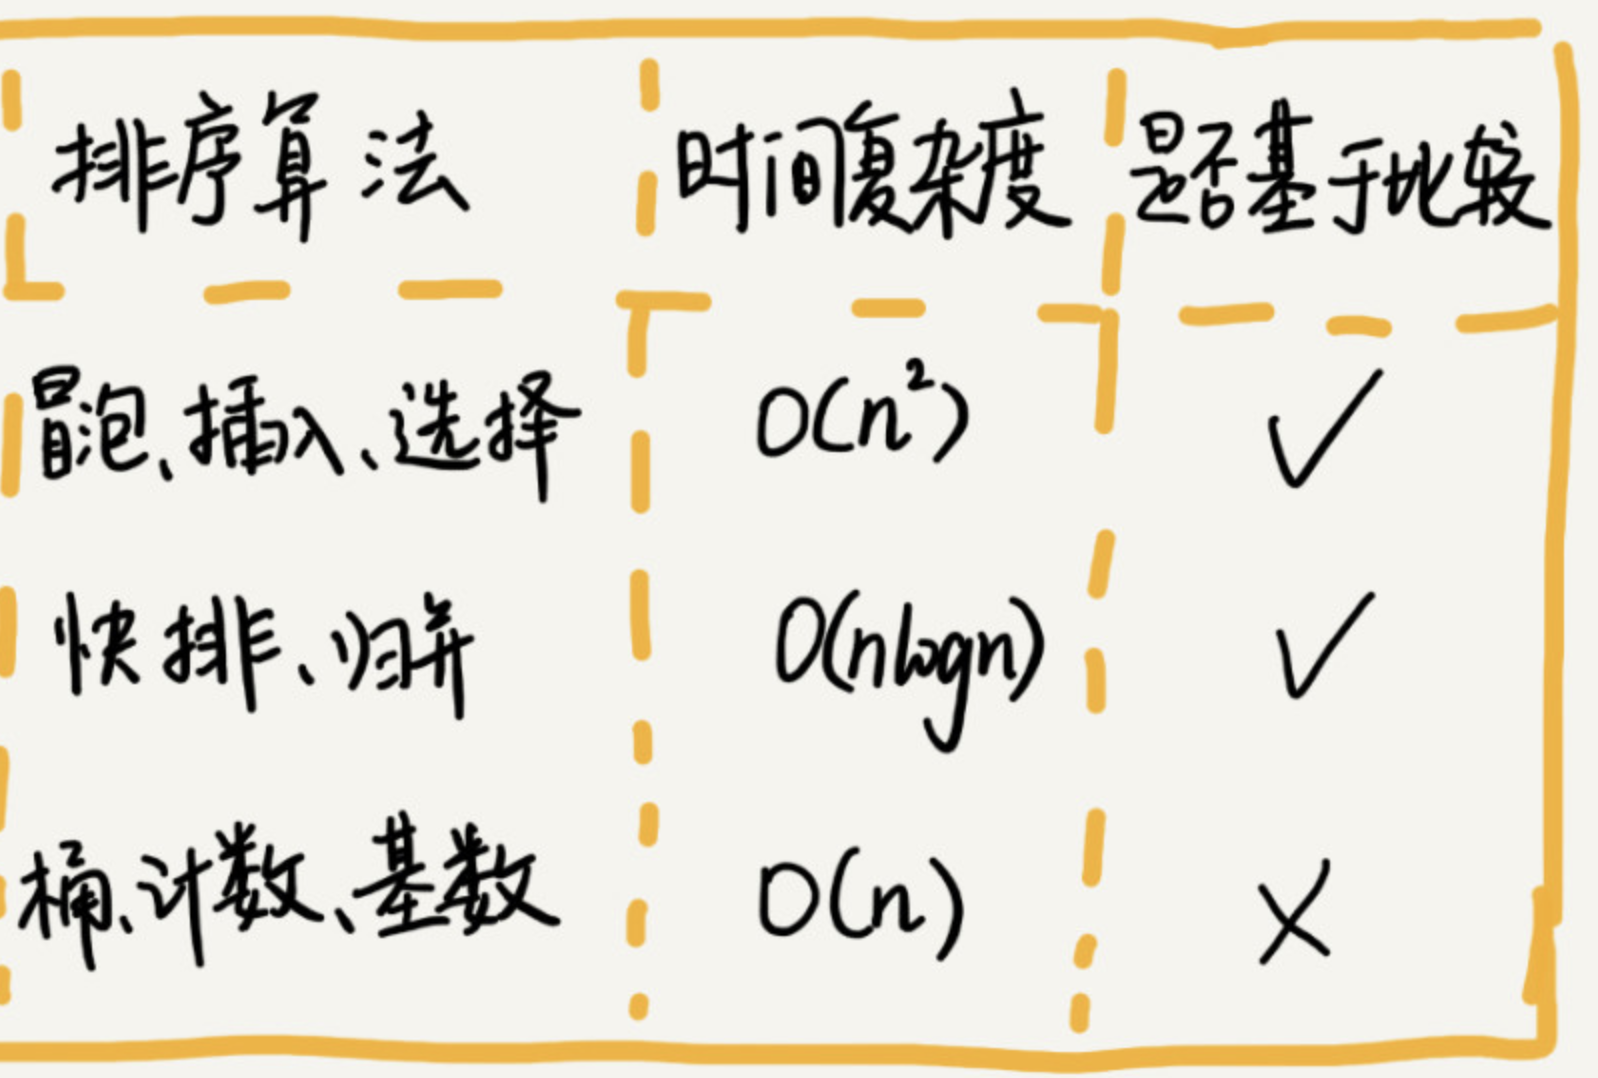 排序算法 时间复杂度 是否基于比较
冒泡、插入、选择 O(n²) ✓
快排、归并 O(nlogn) ✓
桶、计数、基数 O(n) ×